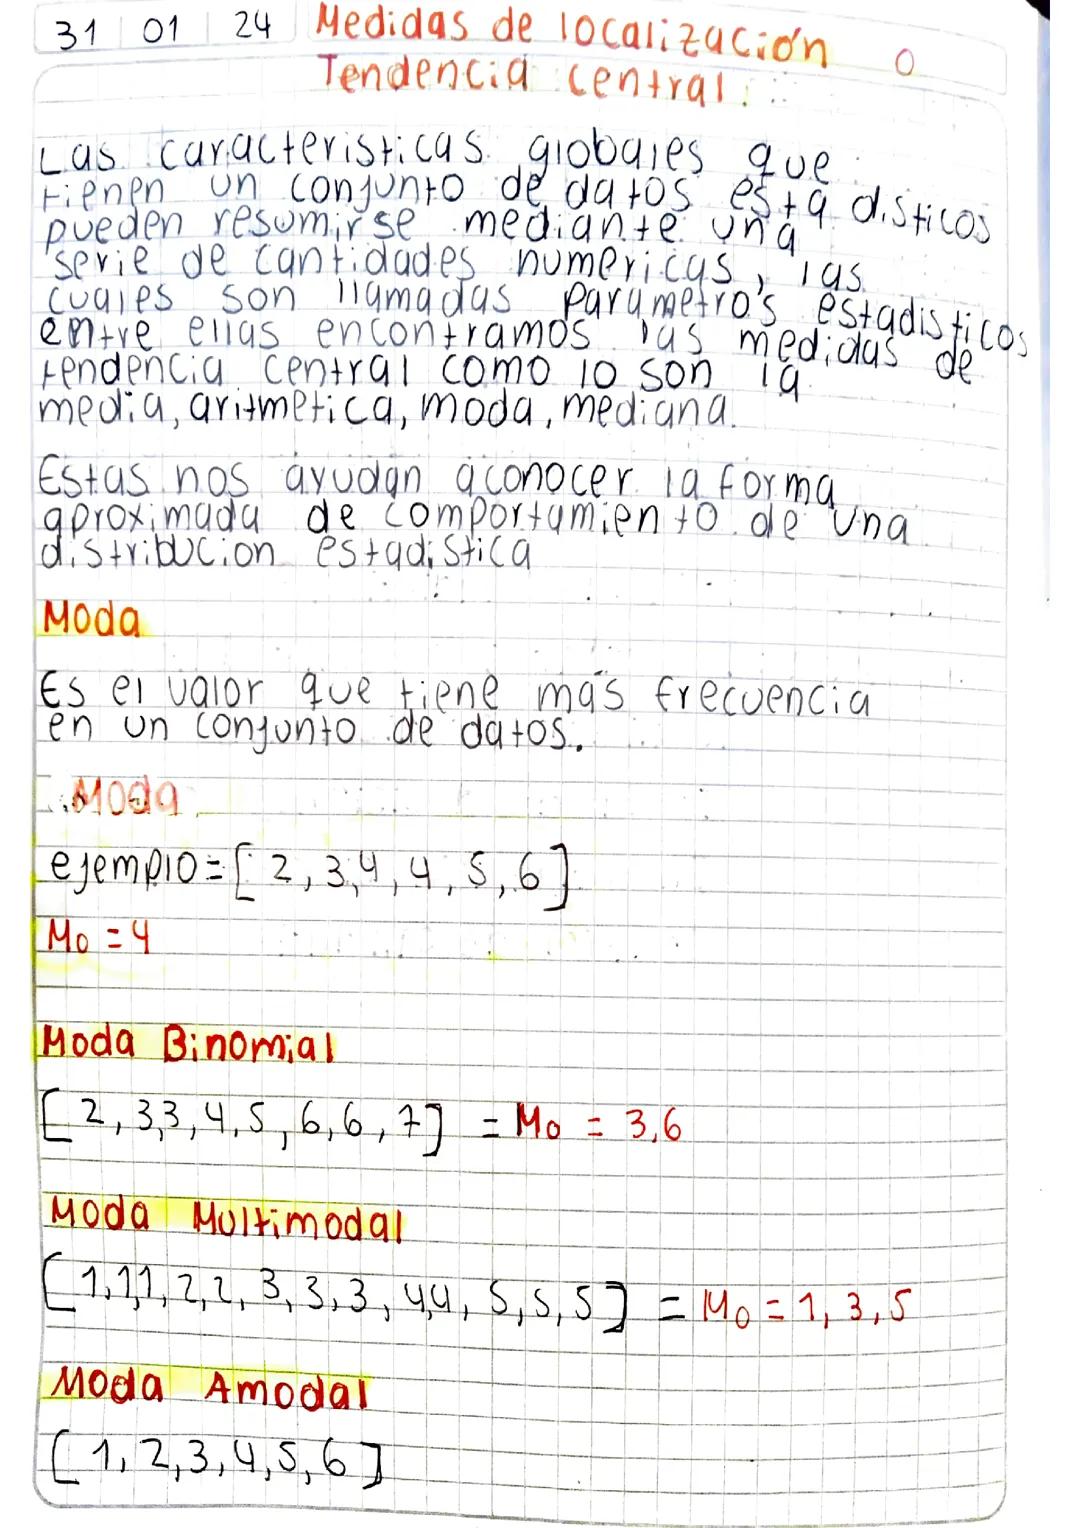 31 01 24 Medidas de localización 0
Tendencia central.
Las caracteristicas globales que
tienen un conjunto de datos esta disticos
pueden resumirse mediante una
serie de cantidades numericas, las
cuales son llamadas parametro's estadisticos
entre ellas encontramos las medidas de
tendencia central como lo son la
media, aritmetica, moda, mediana.
Estas nos ayudan aconocer la forma
aproximada de comportamiento de una
distribucion estadistica
Moda
Es el valor que tiene más frecuencia
en un conjunto de datos.
Moda
ejemplo=[2,3,4,4,5,6]
Mo=4
Moda Binomial
[2,3,3,4,5,6,6,7] = Mo = 3,6
Moda Multimodal
[1,1,1,2,2,3,3,3,4,4,5,5,5] = Mo = 1,3,5
Moda Amodal
[1,2,3,4,5,6]